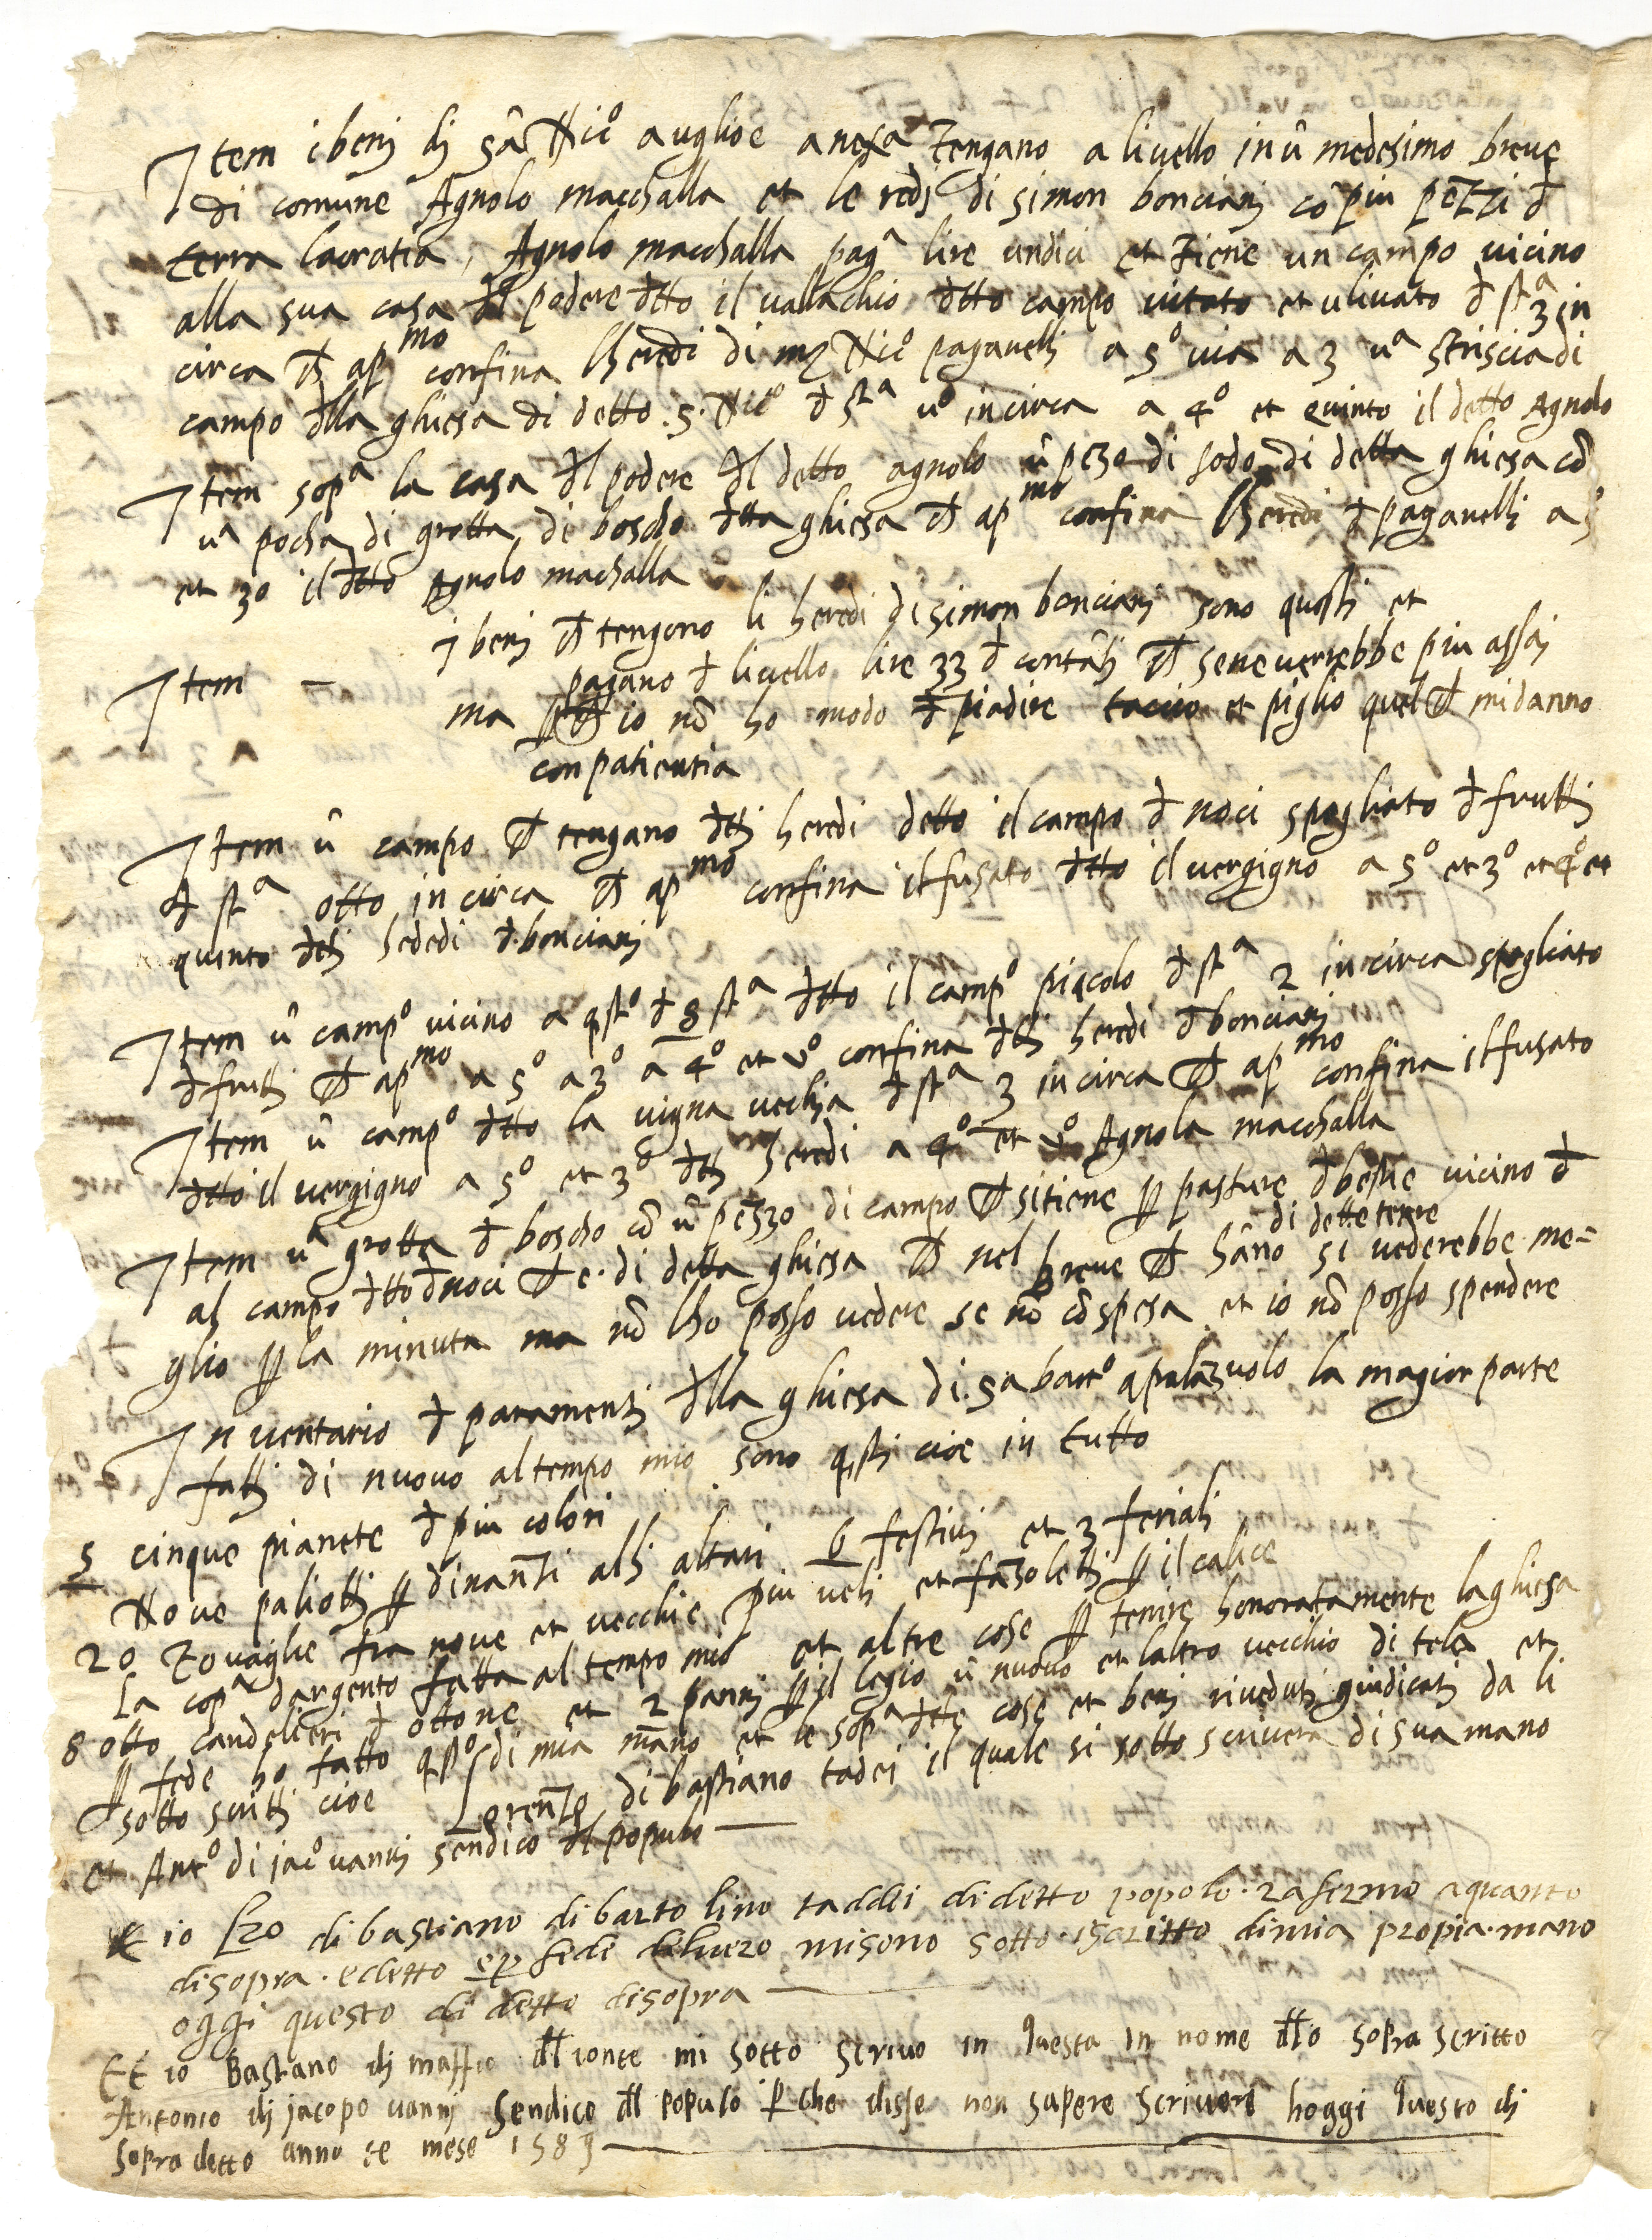 Item i beni di sã Nicº a uglioe anexa tengano a livello in û medesimo breve
di comune Agnolo macchalla et le redi di simon bonciani cõ piu pezzi đ
terra lavratia, Agnolo macchalla pagª lire undici et tiene un campo vicino
alla sua casa đl podere đtto il vallachio đtto campo vitato et ulivato đ stª 3 in
circa cħ apᵐᵒ confina lheredi di mʒ Nicº paganelli a 5º via a 3 uª striscia di
campo đlla ghiesa di detto .S. Nicº đ stª uº in circa a 4º et quinto il detto Agnolo
Item sopª la casa đl podere đl detto agnolo û pezo di sodo di detta ghiesa cõ
uª pocha di grotta di boscho đtta ghiesa cħ apᵐᵒ confina lheredi đ paganelli a 5º
et 3º il đtto Agnolo machalla
Item – i beni cħ tengono li heredi di simon bonciani sono questi et
pagano đ livello lire 33 đ contãti cħ se ne verrebbe piu assai
ma ꝑcħ io nõ ho modo đ piadire taccio et piglio quel cħ mi danno
con patientia
Item û campo cħ tengano đtti heredi detto il campo đ noci spogliato đ frutti
đ stª otto in circa cħ apᵐᵒ confina il fusato đtto il vergigno a 5º et 3º et 4º et
quinto đtti hededi đ bonciani
Item û campº vicino a qstº đ 8 stª đtto il campº piccolo đ stª 2 in circa spogliato
đ frutti cħ apᵐᵒ a 5º a 3º a 4º et vº confina đtti heredi đ bonciani
Item û campº đtto la vigna vechia đ stª 3 in circa cħ apᵐᵒ confina il fusato
đtto il vergigno a 5º et 3º đtti heredi a 4º et vº Agnola macchalla
Item uª grotta đ boscho cõ û pezzo di campo cħ si tiene ꝑ pasture đ bestie vicino đ
al campo đtto đ noci cħ e di detta ghiesa cħ nel breve cħ hãno di dette terre si vederebbe me=
glio ꝑ la minuta ma nõ lho posso vedere se nõ cõ spesa et io nõ posso spendere
Inventario đ paramenti đlla ghiesa di. S a bartº apalazuolo la magior parte
fatti di nuovo al tempo mio sono qsti cioe in tutto
5 cinque pianete đ piu colori
Nove paliotti ꝑ dinanti alli altari 6 festivi et 3 feriali
20 Tovaglie fra nove et vecchie piu veli et fazoletti ꝑ il calice
La copª dargento fatta al tempo mio et altre cose ꝑ tenire honoratamente la ghiesa
8 otto candelieri đ ottone et 2 panni ꝑ il legio û nuovo et laltro vecchio di tela et
ꝑ fede ho fatto qstº di mia mano et le sopª đtte cose et beni riveduti giudicati da li
sotto scritti cioe Lorenzo di bastiano tadei il quale si sotto scrivera di sua mano
et Antº di jacº vanni sendico đl populo —
io Lzo di bastiano di bartolino taddei di detto popolo . rafermo a quanto
disopra . e detto e ꝑ fede deluero mi sono sotto . iscritto di mia propia . mano
oggi questo di detto disopra —
Et io Bastano di maffio đl conte mi sotto scrivo in questa in nome đllo sopra scritto
Antonio di jacopo vanni sendico đl populo ꝑche disse non sapere scrivere hoggi questo di
sopra detto anno et mese 1583 —